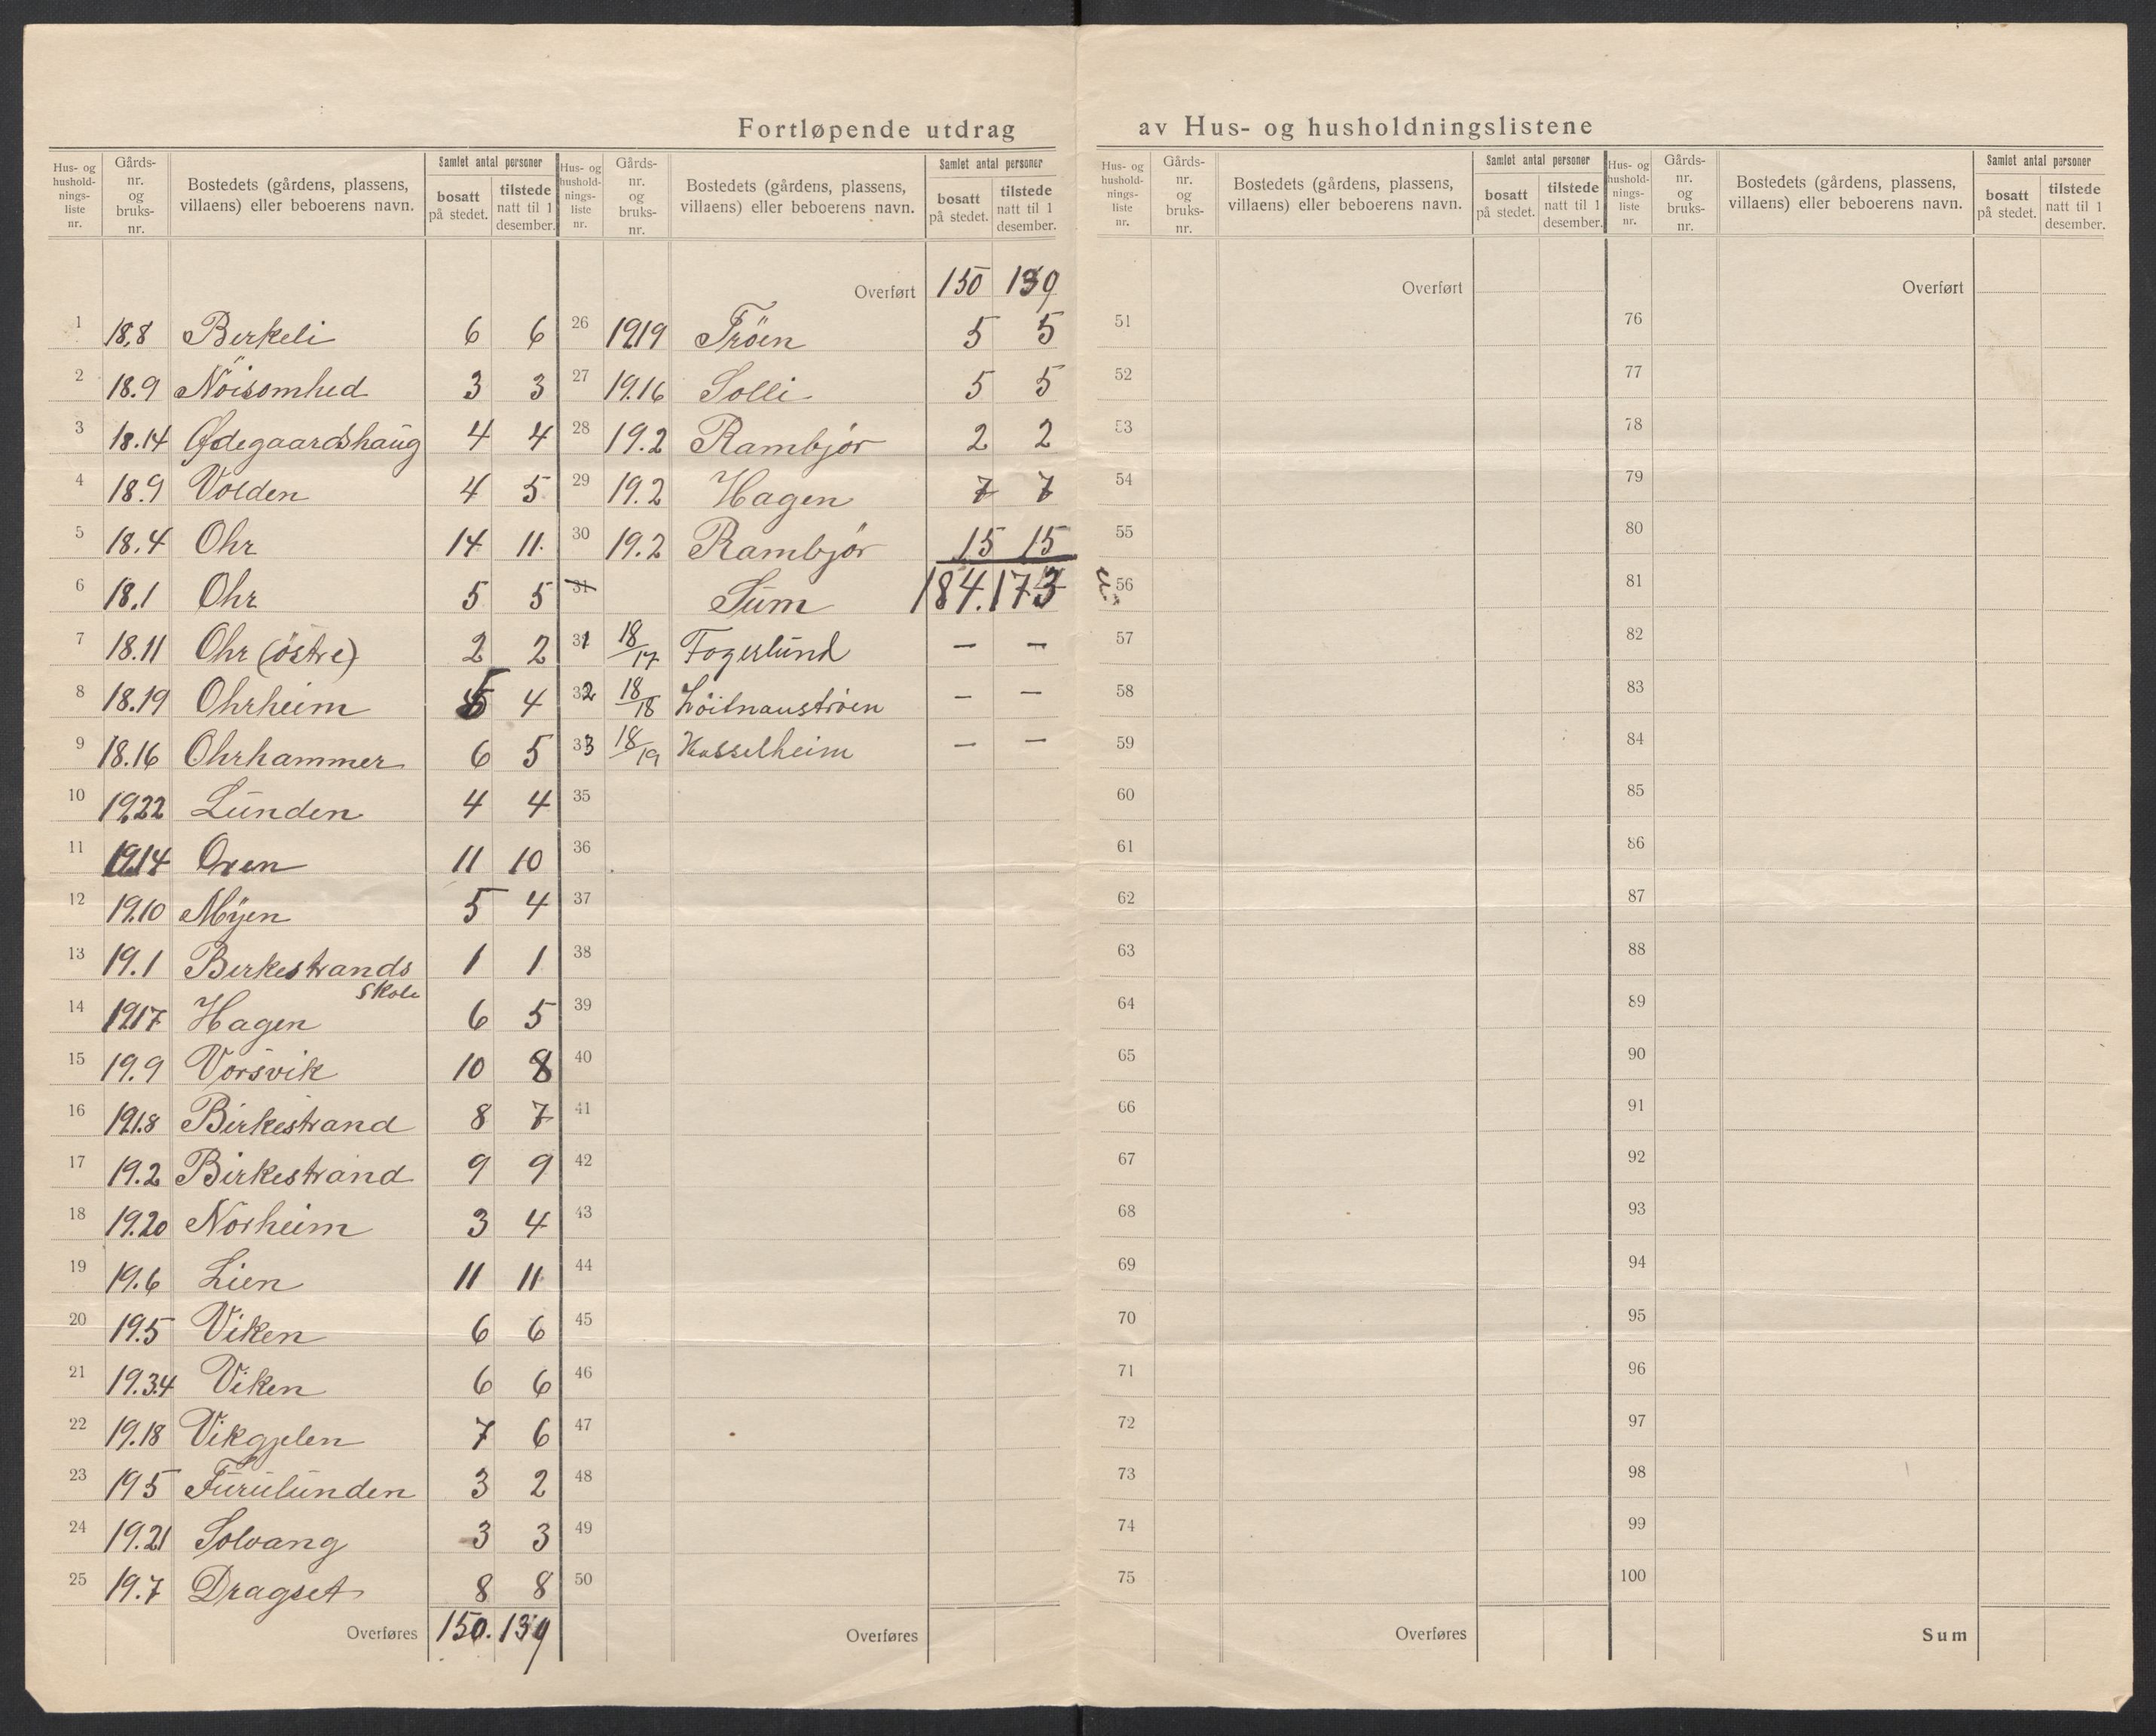 Fortløpende utdrag av Hus- og husholdningslistene
Hus- og hushold-nings-liste nr. Gårds-nr. og bruks-nr. Bostedets (gårdens, plassens, villaens) eller beboerens navn. Samlet antal personer bosatt på stedet. tilstede natt til 1 desember.
1 18,8 Birkeli 6 6
2 18.9 Nöisomhed 3 3
3 18.14 Ødegaardshaug 4 4
4 18.9 Volden 4 5
5 18.4 Ohr 14 11
6 18.1 Ohr 5 5
7 18.11 Ohr (östre) 2 2
8 18.19 Ohrheim 5 4
9 18.16 Ohrhammer 6 5
10 19,22 Lunden 4 4
11 19.14 Oren 11 10
12 19.10 Myen 5 4
13 19.1 Birkestrands skole 1 1
14 19.17 Hagen 6 5
15 19.9 Vorsvik 10 8
16 19.8 Birkestrand 8 7
17 19.2 Birkestrand 9 9
18 19.20 Norheim 3 4
19 19.6 Lien 11 11
20 19.5 Viken 6 6
21 19.3.4 Viken 6 6
22 19.18 Vikgjelen 7 6
23 19.5 Furulunden 3 2
24 19.21 Solvang 3 3
25 19.7 Dragset 8 8
Overføres 150. 139
Hus- og hushold-nings-liste nr. Gårds-nr. og bruks-nr. Bostedets (gårdens, plassens, villaens) eller beboerens navn. Samlet antal personer bosatt på stedet. tilstede natt til 1 desember.
Overført 150 139
26 19.19 Tröen 5 5
27 19.16 Solli 5 5
28 19.2 Rambjör 2 2
29 19.2 Hagen 7 7
30 19.2 Rambjör 15 15
31 Sum 184. 173
31 18/17 Fogerlund — —
32 18/18 Löitnanströen — —
33 18/19 Hasselheim — —
35
36
37
38
39
40
41
42
43
44
45
46
47
48
49
50
Overføres
Hus- og hushold-nings-liste nr. Gårds-nr. og bruks-nr. Bostedets (gårdens, plassens, villaens) eller beboerens navn. Samlet antal personer bosatt på stedet. tilstede natt til 1 desember.
Overført
51
52
53
54
55
56
57
58
59
60
61
62
63
64
65
66
67
68
69
70
71
72
73
74
75
Overføres
Hus- og hushold-nings-liste nr. Gårds-nr. og bruks-nr. Bostedets (gårdens, plassens, villaens) eller beboerens navn. Samlet antal personer bosatt på stedet. tilstede natt til 1 desember.
Overført
76
77
78
79
80
81
82
83
84
85
86
87
88
89
90
91
92
93
94
95
96
97
98
99
100
Sum